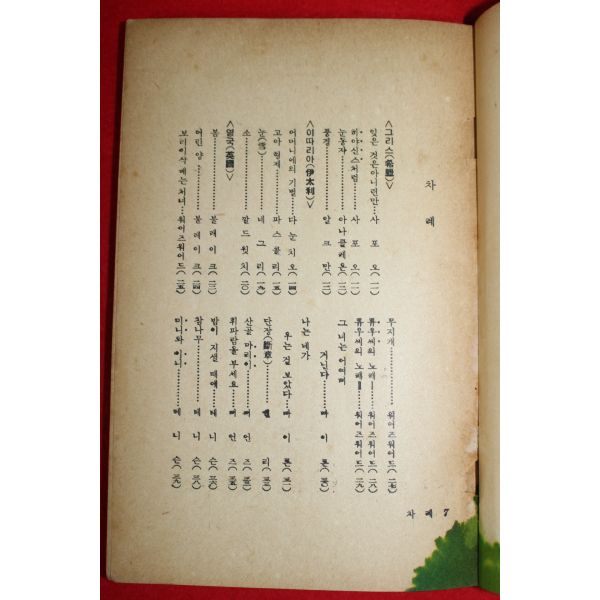 차례
<그리스(希臘)>
잊은 것은아니련만……사포오(一一)
히야신스처럼……사포오(一一)
눈동자……아나클레온(一二)
풍경……알크만(一二)
<이따리아(伊太利)>
어머니에의 기별……다눈치오(一四)
고아 형제……파스콜리(一五)
눈(雪)……네그리(一九)
소……깔드윗치(二〇)
<영국(英國)>
봄……블레이크(二二)
어린 양……블레이크(二四)
보리이삭 베는처녀……워어즈워어드(二五)
무지개……워어즈워어드(二七)
류우씨의 노래Ⅰ……워어즈워어드(二八)
류우씨의 노래Ⅱ……워어즈워어드(二九)
그 녀는 어여삐
거닌다……바이론
나는 네가
우는걸 보았다……바이론
단장(斷章)……쉘리
산골 마리이……버언즈
휘파람을 부세요……버언즈
밤이 지샐 때에……테니슨
참나무……테니슨
미니와 위니……테니슨
차례 7